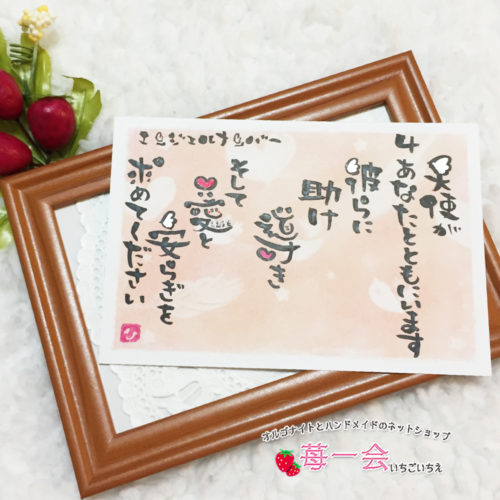 エンジェルナンバー
天使が
4あなたとともにいます
彼らに
助け
導き
そして
愛と
安らぎを
求めてください
オルゴナイトとハンドメイドのネットショップ
苺一会いちごいちえ